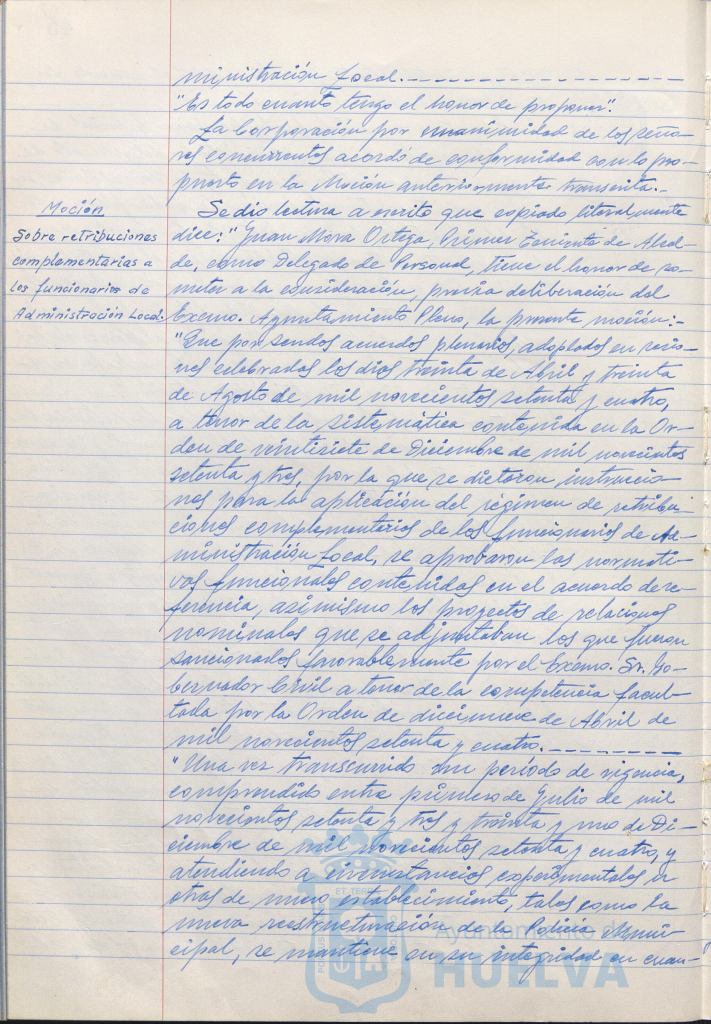 ministración Local.-----------------
"Es todo cuanto tengo el honor de proponer".
La Corporación por unanimidad de los seño-
res concurrentes acordó de conformidad con lo pro-
puesto en la Moción anteriormente transcrita.-
Moción
Sobre retribuciones
complementarias a
los funcionarios de
Administración Local.
Se dio lectura a escrito que copiado literalmente
dice: "Juan Mora Ortega, Primer Teniente de Alcal-
de, como Delegado de Personal, tiene el honor de so-
meter a la consideración, previa deliberación del
Excmo. Ayuntamiento Pleno, la presente moción:-
"Que por sendos acuerdos plenarios, adoptados en sesio-
nes celebradas los días treinta de Abril y treinta
de Agosto de mil novecientos setenta y cuatro,
a tenor de la sistemática contenida en la Or-
den de veintisiete de Diciembre de mil novecientos
setenta y tres, por la que se dictaron instruccio-
nes para la aplicación del régimen de retribu-
ciones complementarias de los funcionarios de Ad-
ministración Local, se aprobaron las normati-
vas funcionales contenidas en el acuerdo de re-
ferencia, asimismo los proyectos de relaciones
nominales que se adjuntaban los que fueron
sancionados favorablemente por el Excmo. Sr. Go-
bernador Civil a tenor de la competencia facul-
tada por la Orden de diecinueve de Abril de
mil novecientos setenta y cuatro.---------
"Una vez transcurrido un período de vigencia,
comprendido entre primero de Julio de mil
novecientos setenta y tres y treinta y uno de Di-
ciembre de mil novecientos setenta y cuatro, y
atendiendo a circunstancias experimentales u
otras de nuevo establecimiento, tales como la
nueva reestructuración de la Policía Muni-
cipal, se mantiene en su integridad en cuan-
Ayuntamiento de
HUELVA